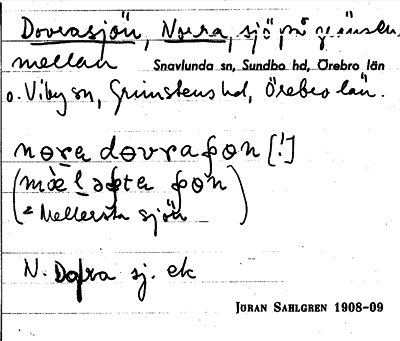 Dovrasjön, Norra, sjö på gränsen
mellan Snavlunda sn, Sundbo hd, Örebro län
o. Viby sn, Grimstens hd, Örebro län.
nora dovra [!]
= Mellersta sjön
N. Dofra sj. ek
JÖRAN SAHLGREN 1908-09